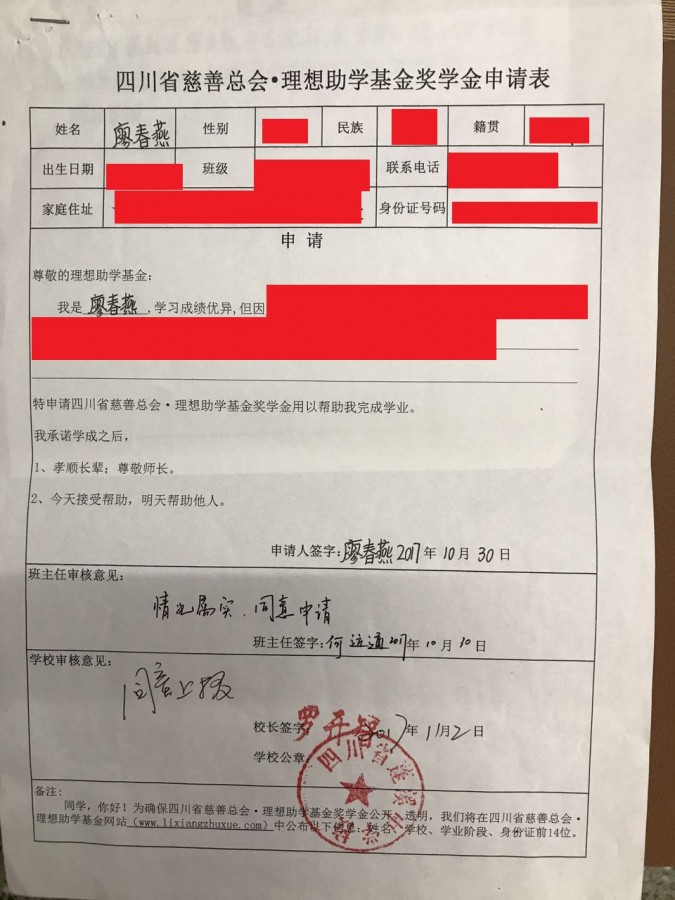 四川省慈善总会•理想助学基金奖学金申请表
姓名 廖春燕 性别 民族 籍贯
出生日期 班级 联系电话
家庭住址 身份证号码
申 请
尊敬的理想助学基金：
我是 廖春燕 ,学习成绩优异,但因
特申请四川省慈善总会•理想助学基金奖学金用以帮助我完成学业。
我承诺学成之后，
1、孝顺长辈；尊敬师长。
2、今天接受帮助，明天帮助他人。
申请人签字: 廖春燕 2017 年 10 月 30 日
班主任审核意见：
情况属实、同意申请
班主任签字: 何 2017 年 10 月 30 日
学校审核意见：
同意上报
校长签字 2017 年 11 月 2 日
学校公章
四川省蓬溪
备注:
同学，你好！为确保四川省慈善总会•理想助学基金奖学金公开、透明，我们将在四川省慈善总会•
理想助学基金网站（www.lixiangzhuxue.com）中公布以下信息：姓名、学校、学业阶段、身份证前14位。